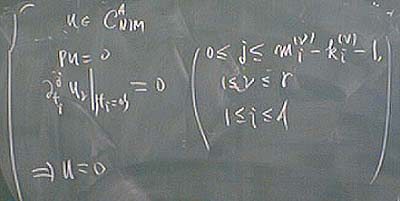 u ∈ C^A_{N|M}
Pu = 0
∂^j_{t_i} u_ν |_{{t_i=0}} = 0 ( 0 ≤ j ≤ m_i^{(ν)} - k_i^{(ν)} - 1,
1 ≤ ν ≤ r
1 ≤ i ≤ d )
⇒ u = 0